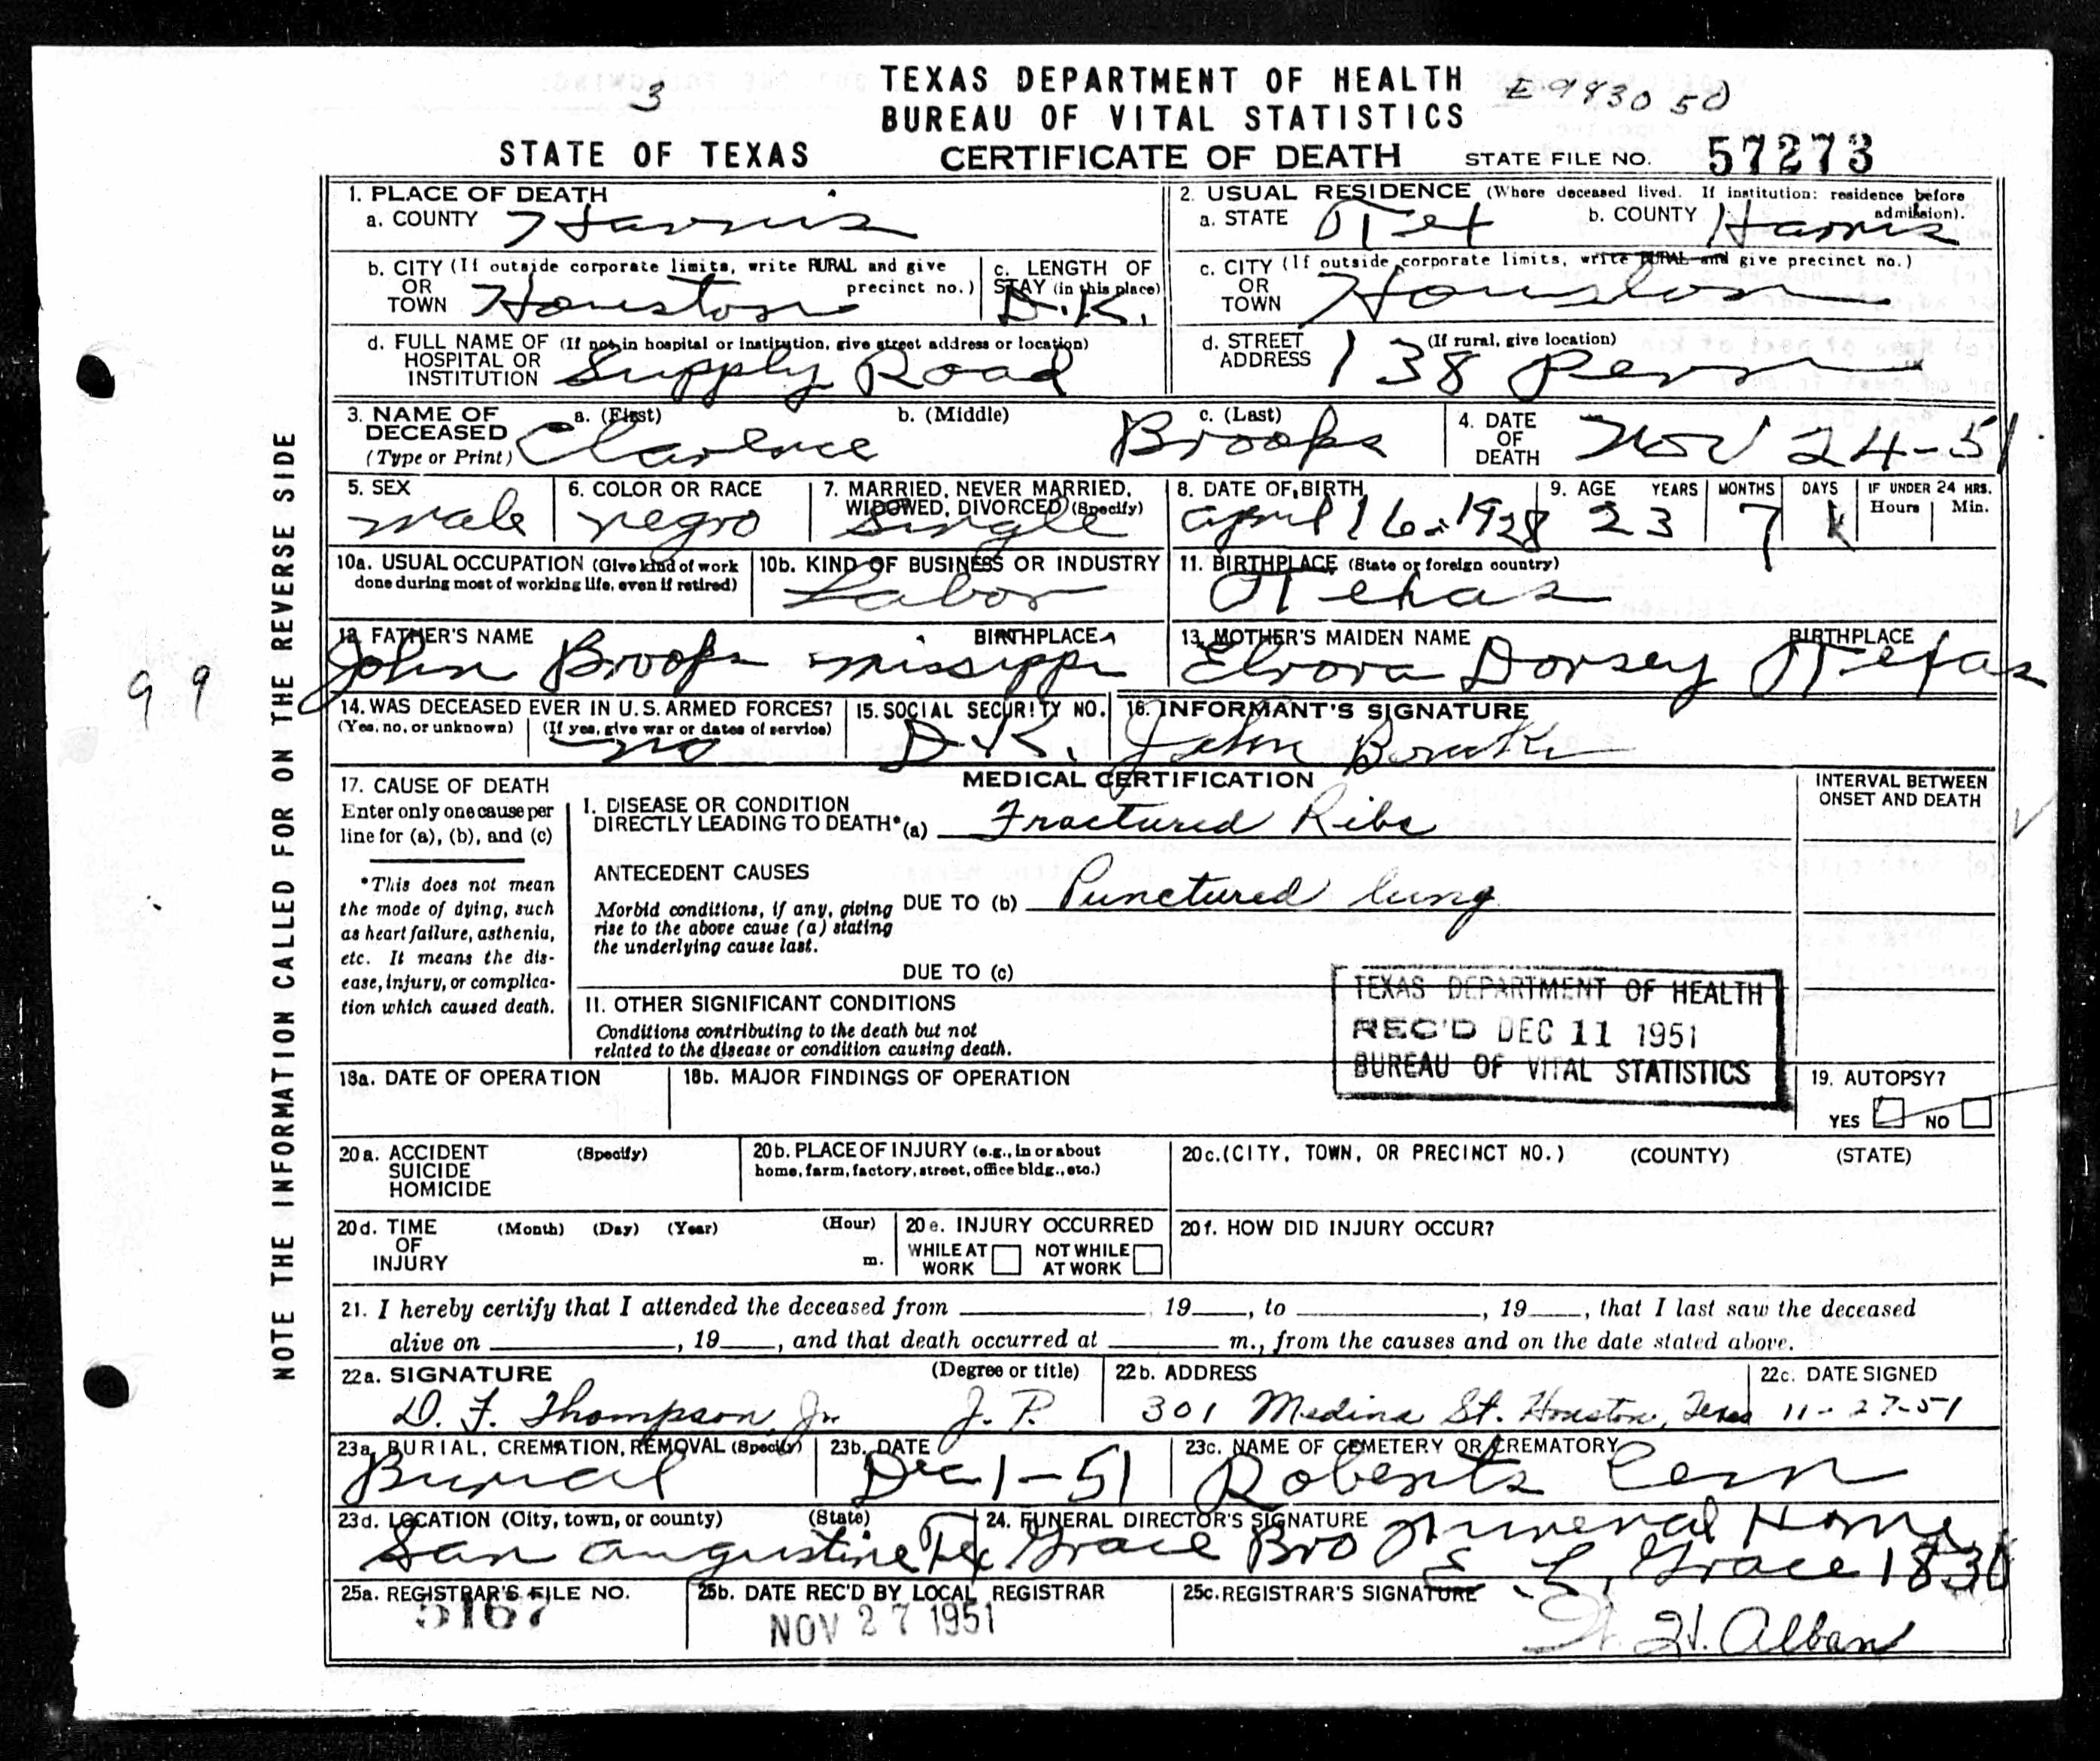 TEXAS DEPARTMENT OF HEALTH
3
E983050
BUREAU OF VITAL STATISTICS
STATE OF TEXAS
CERTIFICATE OF DEATH
STATE FILE NO. 57273
NOTE THE INFORMATION CALLED FOR ON THE REVERSE SIDE
99
1. PLACE OF DEATH
a. COUNTY Harris
2. USUAL RESIDENCE (Where deceased lived. If institution: residence before admission).
a. STATE Tex b. COUNTY Harris
b. CITY (If outside corporate limits, write RURAL and give precinct no.)
OR TOWN Houston
c. LENGTH OF STAY (in this place) D.K.
c. CITY (If outside corporate limits, write RURAL and give precinct no.)
OR TOWN Houston
d. FULL NAME OF (If not in hospital or institution, give street address or location)
HOSPITAL OR INSTITUTION Supply Road
d. STREET ADDRESS (If rural, give location) 138 Penn
3. NAME OF DECEASED (Type or Print)
a. (First) Clarence b. (Middle) c. (Last) Brooks
4. DATE OF DEATH Nov 24-51
5. SEX male
6. COLOR OR RACE negro
7. MARRIED, NEVER MARRIED, WIDOWED, DIVORCED (Specify) Single
8. DATE OF BIRTH April 16-1928
9. AGE YEARS 23 MONTHS 7 DAYS
IF UNDER 24 HRS. Hours Min.
10a. USUAL OCCUPATION (Give kind of work done during most of working life, even if retired)
10b. KIND OF BUSINESS OR INDUSTRY
Labor
11. BIRTHPLACE (State or foreign country)
Texas
12. FATHER'S NAME BIRTHPLACE
John Brooks Missippi
13. MOTHER'S MAIDEN NAME BIRTHPLACE
Elvora Dorsey Texas
14. WAS DECEASED EVER IN U.S. ARMED FORCES?
(Yes, no, or unknown) (If yes, give war or dates of service)
no
15. SOCIAL SECURITY NO.
D.K.
16. INFORMANT'S SIGNATURE
John
17. CAUSE OF DEATH
Enter only one cause per line for (a), (b), and (c)
*This does not mean the mode of dying, such as heart failure, asthenia, etc. It means the disease, injury, or complication which caused death.
MEDICAL CERTIFICATION
INTERVAL BETWEEN ONSET AND DEATH
I. DISEASE OR CONDITION
DIRECTLY LEADING TO DEATH* (a) Fractured Ribs
ANTECEDENT CAUSES
Morbid conditions, if any, giving rise to the above cause (a) stating the underlying cause last.
DUE TO (b) Punctured lung
DUE TO (c)
II. OTHER SIGNIFICANT CONDITIONS
Conditions contributing to the death but not related to the disease or condition causing death.
TEXAS DEPARTMENT OF HEALTH
REC'D DEC 11 1951
BUREAU OF VITAL STATISTICS
18a. DATE OF OPERATION
18b. MAJOR FINDINGS OF OPERATION
19. AUTOPSY?
YES NO
20a. ACCIDENT (Specify)
SUICIDE
HOMICIDE
20b. PLACE OF INJURY (e.g., in or about home, farm, factory, street, office bldg., etc.)
20c. (CITY, TOWN, OR PRECINCT NO.) (COUNTY) (STATE)
20d. TIME OF INJURY (Month) (Day) (Year) (Hour) m.
20e. INJURY OCCURRED
WHILE AT WORK NOT WHILE AT WORK
20f. HOW DID INJURY OCCUR?
21. I hereby certify that I attended the deceased from 19, to , 19, that I last saw the deceased
alive on , 19, and that death occurred at m., from the causes and on the date stated above.
22a. SIGNATURE (Degree or title)
D. F. Thompson, Jr. J. P.
22b. ADDRESS
301 Medina St. Houston, Texas
22c. DATE SIGNED
11-27-51
23a. BURIAL, CREMATION, REMOVAL (Specify)
Burial
23b. DATE
Dec 1-51
23c. NAME OF CEMETERY OR CREMATORY
Roberts Cem
23d. LOCATION (City, town, or county) (State)
San Augustine Tex
24. FUNERAL DIRECTOR'S SIGNATURE
Grace Bro Funeral Home
E. L. Grace 1830
25a. REGISTRAR'S FILE NO.
5167
25b. DATE REC'D BY LOCAL REGISTRAR
NOV 27 1951
25c. REGISTRAR'S SIGNATURE
H. Alban